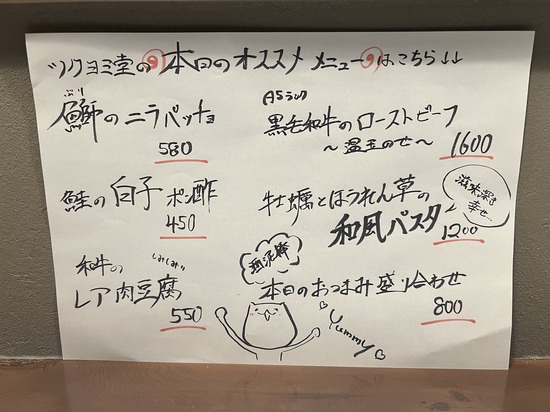 ツクヨミ堂の本日のオススメメニューはこちら↓↓
ぶり
鰤のニラパッチョ
580
鮭の白子ポン酢
450
和牛の
しみしみ
レア肉豆腐
550
A5ランク
黒毛和牛のローストビーフ
～温玉のせ～
1600
牡蠣とほうれん草の
和風パスタ
1200
滋味深き
幸せ…
本日のおつまみ盛り合わせ
800
Yummy